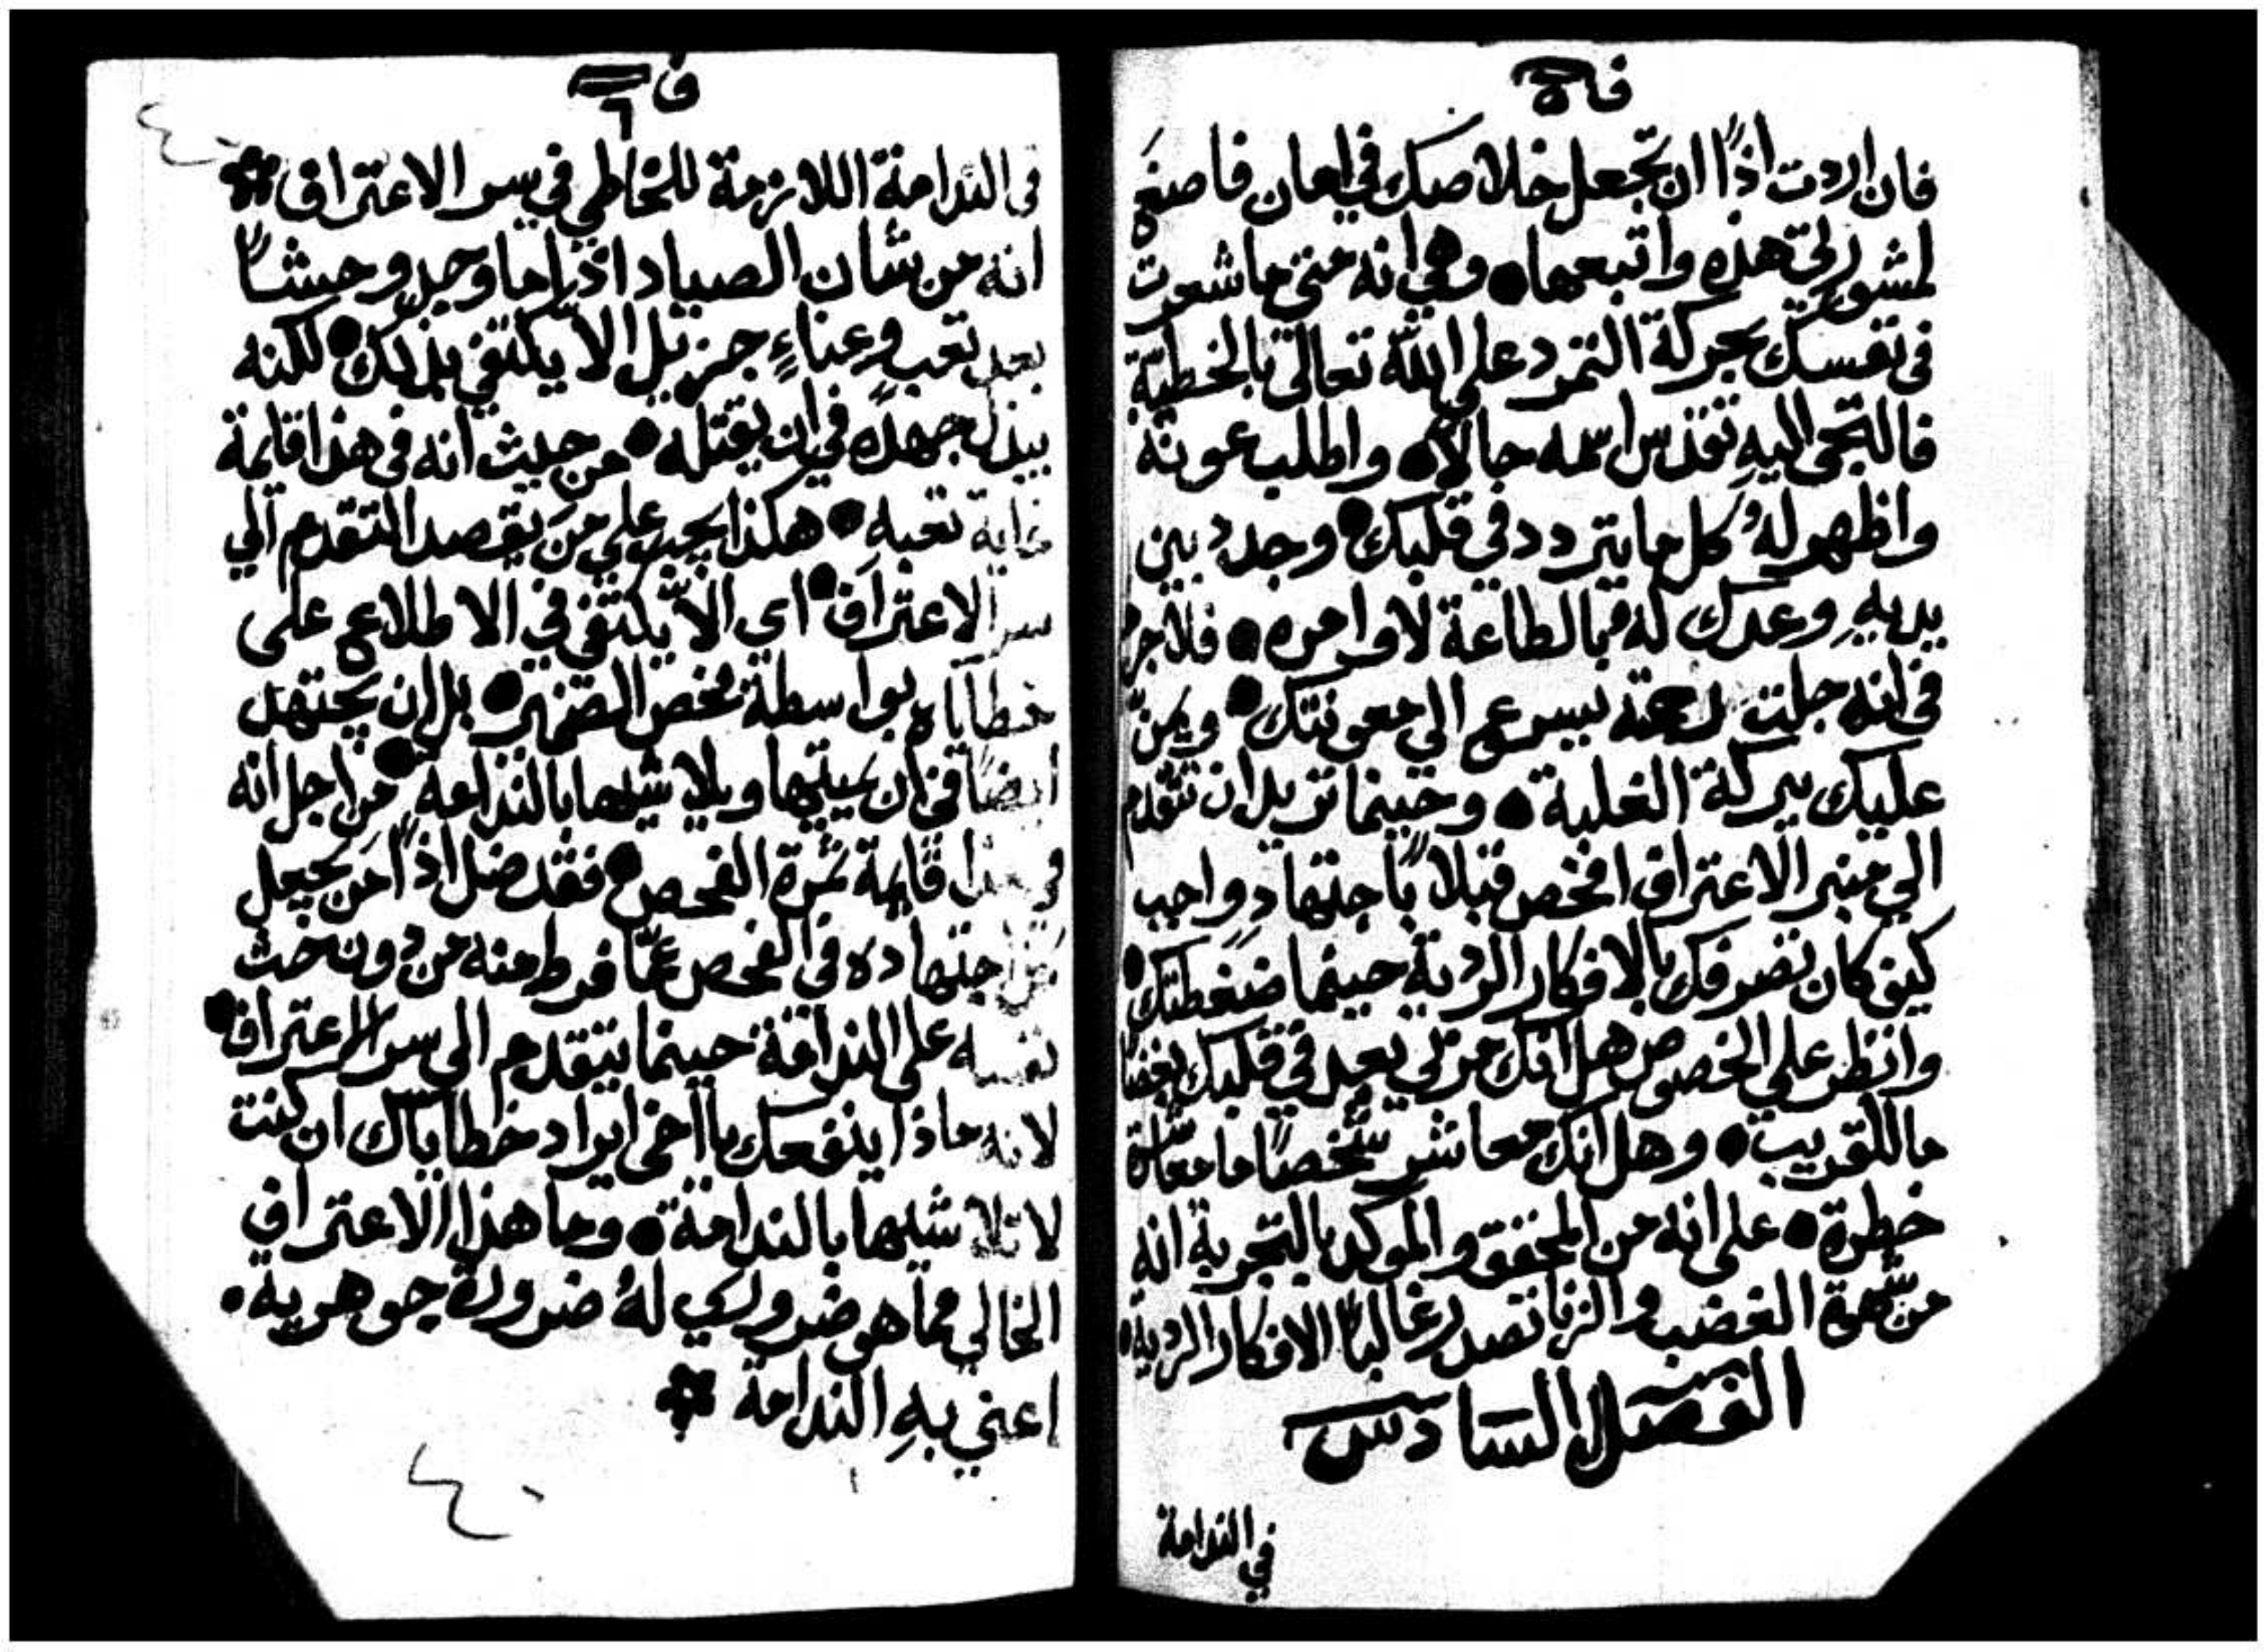 ف ٥
فان اردت اذًا ان تجعل خلاصك في امان فاصغَ
لمشورتي هذه واتبعها ● وهي انه متى ما شعرت
في نفسك بحركة التمرد على الله تعالى بالخطيّة
فالتجي اليهِ تقدس اسمه حالاً ● واطلب عونهُ
واظهر لهُ كل ما يتردد في قلبك ● وجدد بين
يديهِ وعدك له بالطاعة لاوامره ● فلا جرم
في انه جلت رحمته يسرع الى معونتك ● ويمنّ
عليك ببركة الغلبة ● وحينما تريد ان تتقدم
الى منبر الاعتراف افحص قبلاً باجتهاد واجب
كيف كان تصرفك بالافكار الردية حينما ضغطتك ●
وانظر على الخصوص هل انك مربّي بعد في قلبك بغضًا
ما للقريب ● وهل انك معاشر شخصًا ما معاشرة
خطرة ● على انه من المحقق والموكد بالتجربة انه
من شهوة الغضب والزنا تصدر غالبًا الافكار الردية ●
الفصل السادس
في الندامة
ف ٦
٤٠
في الندامة اللازمة للخاطي في سر الاعتراف
انه من شان الصياد اذا ما وجد وحشًا
بعد تعب وعناءٍ جزيل الاّ يكتفي بذلك ● لكنه
يبذل جهده في ان يقتله ● من حيث انه في هذا قايمة
غاية تعبهِ ● هكذا يجب على من يقصد التقدم الى
سر الاعتراف ● اي الاّ يكتفي في الاطلاع على
خطاياه بواسطة فحص الضمير ● بل ان يجتهد
ايضًا في ان يميتها ويلاشيها بالندامة ● من اجل انه
في هذا قايمة ثمرة الفحص ● فقد ضل اذًا من يجعل
كل اجتهاده في الفحص عمّا فرط منه من دون حث
نفسه على الندامة حينما يتقدم الى سر الاعتراف ●
لانه ماذا ينفعك يا اخي ايراد خطاياك ان كنت
لا تلاشيها بالندامة ● وما هذا الاعتراف
الخالي مما هو ضروري لهُ ضرورة جوهرية ●
اعني بهِ الندامة
٤٠